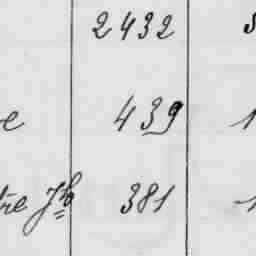 2432
e 439 1
tre Jh 381 1